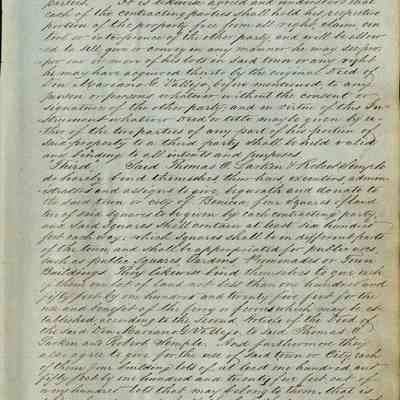 parties. It is likewise agreed and understood that
each of the contracting parties shall hold his respective
portion of the property free from all right, claim, con
trol or interference of the other party, and will be allow
ed to sell, give or convey in any manner he may see pro
per one or more of his lots in said town or any right
he may have acquired thereto by the original Deed of
Don Mariano G. Vallejo, by no means to any
person or persons whatever without the consent or
signature of the other party, and in virtue of this In
strument whatever Deed or title may be given by ei
ther of the two parties of any part of his portion of
said property to a third party shall be held valid
and binding to all intents and purposes.
Third. Said Thomas O. Larkin & Robert Semple
do hereby bind themselves their heirs, executors admin
istrators and assigns to give bequeath and donate to
the said town or city of Benicia four squares of land
two of said squares to be given by each contracting party,
and said squares shall contain at least six hundred
feet each way, which squares shall be in different parts
of the town and shall be appropriated for public uses
such as public Squares, Gardens Promenades or Town
Buildings. They likewise bind themselves to give each
of them one lot of land not less than one hundred and
fifty feet by one hundred and twenty five feet for the
use and benefit of the ferry or ferries which may be es
tablished according to the Second Article of the Deed of
the said Don Mariano G. Vallejo to said Thomas O.
Larkin and Robert Semple. And furthermore they
also agree to give for the use of said town or City each
of them four building lots of at least one hundred and
fifty feet by one hundred and twenty five feet out of
any hundred lots that may belong to them, that is